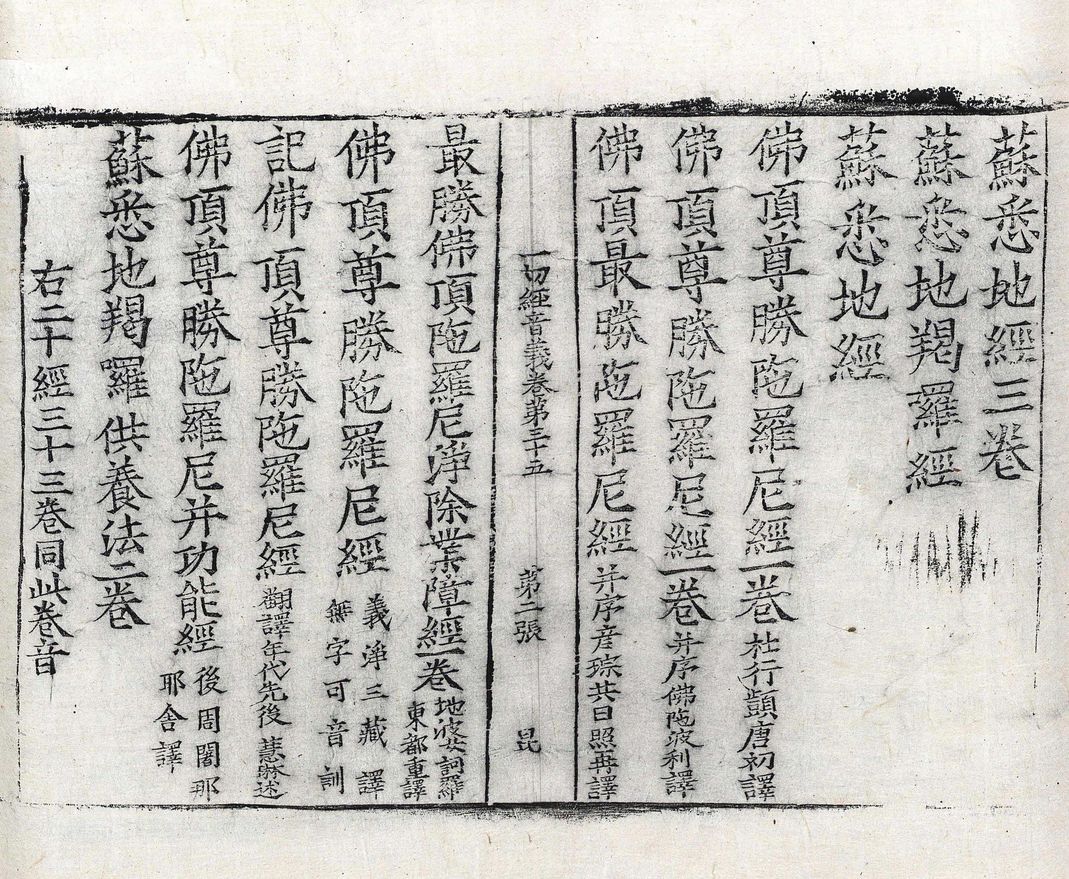 蘇悉地經三卷
蘇悉地羯羅經
蘇悉地經
佛頂尊勝陁羅尼經一卷 杜行顗唐初譯
佛頂尊勝陁羅尼經一卷 并序佛陁波利譯
佛頂最勝陁羅尼經 并序彦琮共日照再譯
一切經音義卷第三十五 第二張 昆
最勝佛頂陁羅尼淨除業障經一卷 地波女訶羅
東都重譯
佛頂尊勝陁羅尼經 義淨三藏譯
無字可音訓
記佛頂尊勝陁羅尼經 翻譯年代先後 慧琳述
佛頂尊勝陁羅尼并功能經 後周闍那
耶舍譯
蘇悉地羯羅供養法二卷
右二十經三十三卷同此卷音